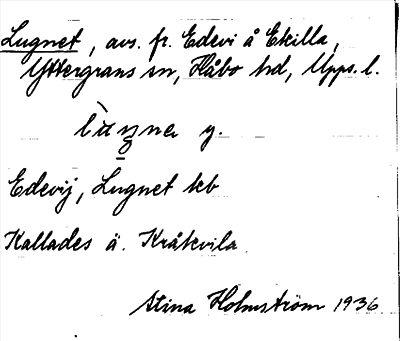 Lugnet, avs. fr. Edevi å Ekilla,
Yttergrans sn, Håbo hd, Upps. l.
y.
Edevij, Lugnet tkb
Kallades ä. Kråkvila
Stina Holmström 1936